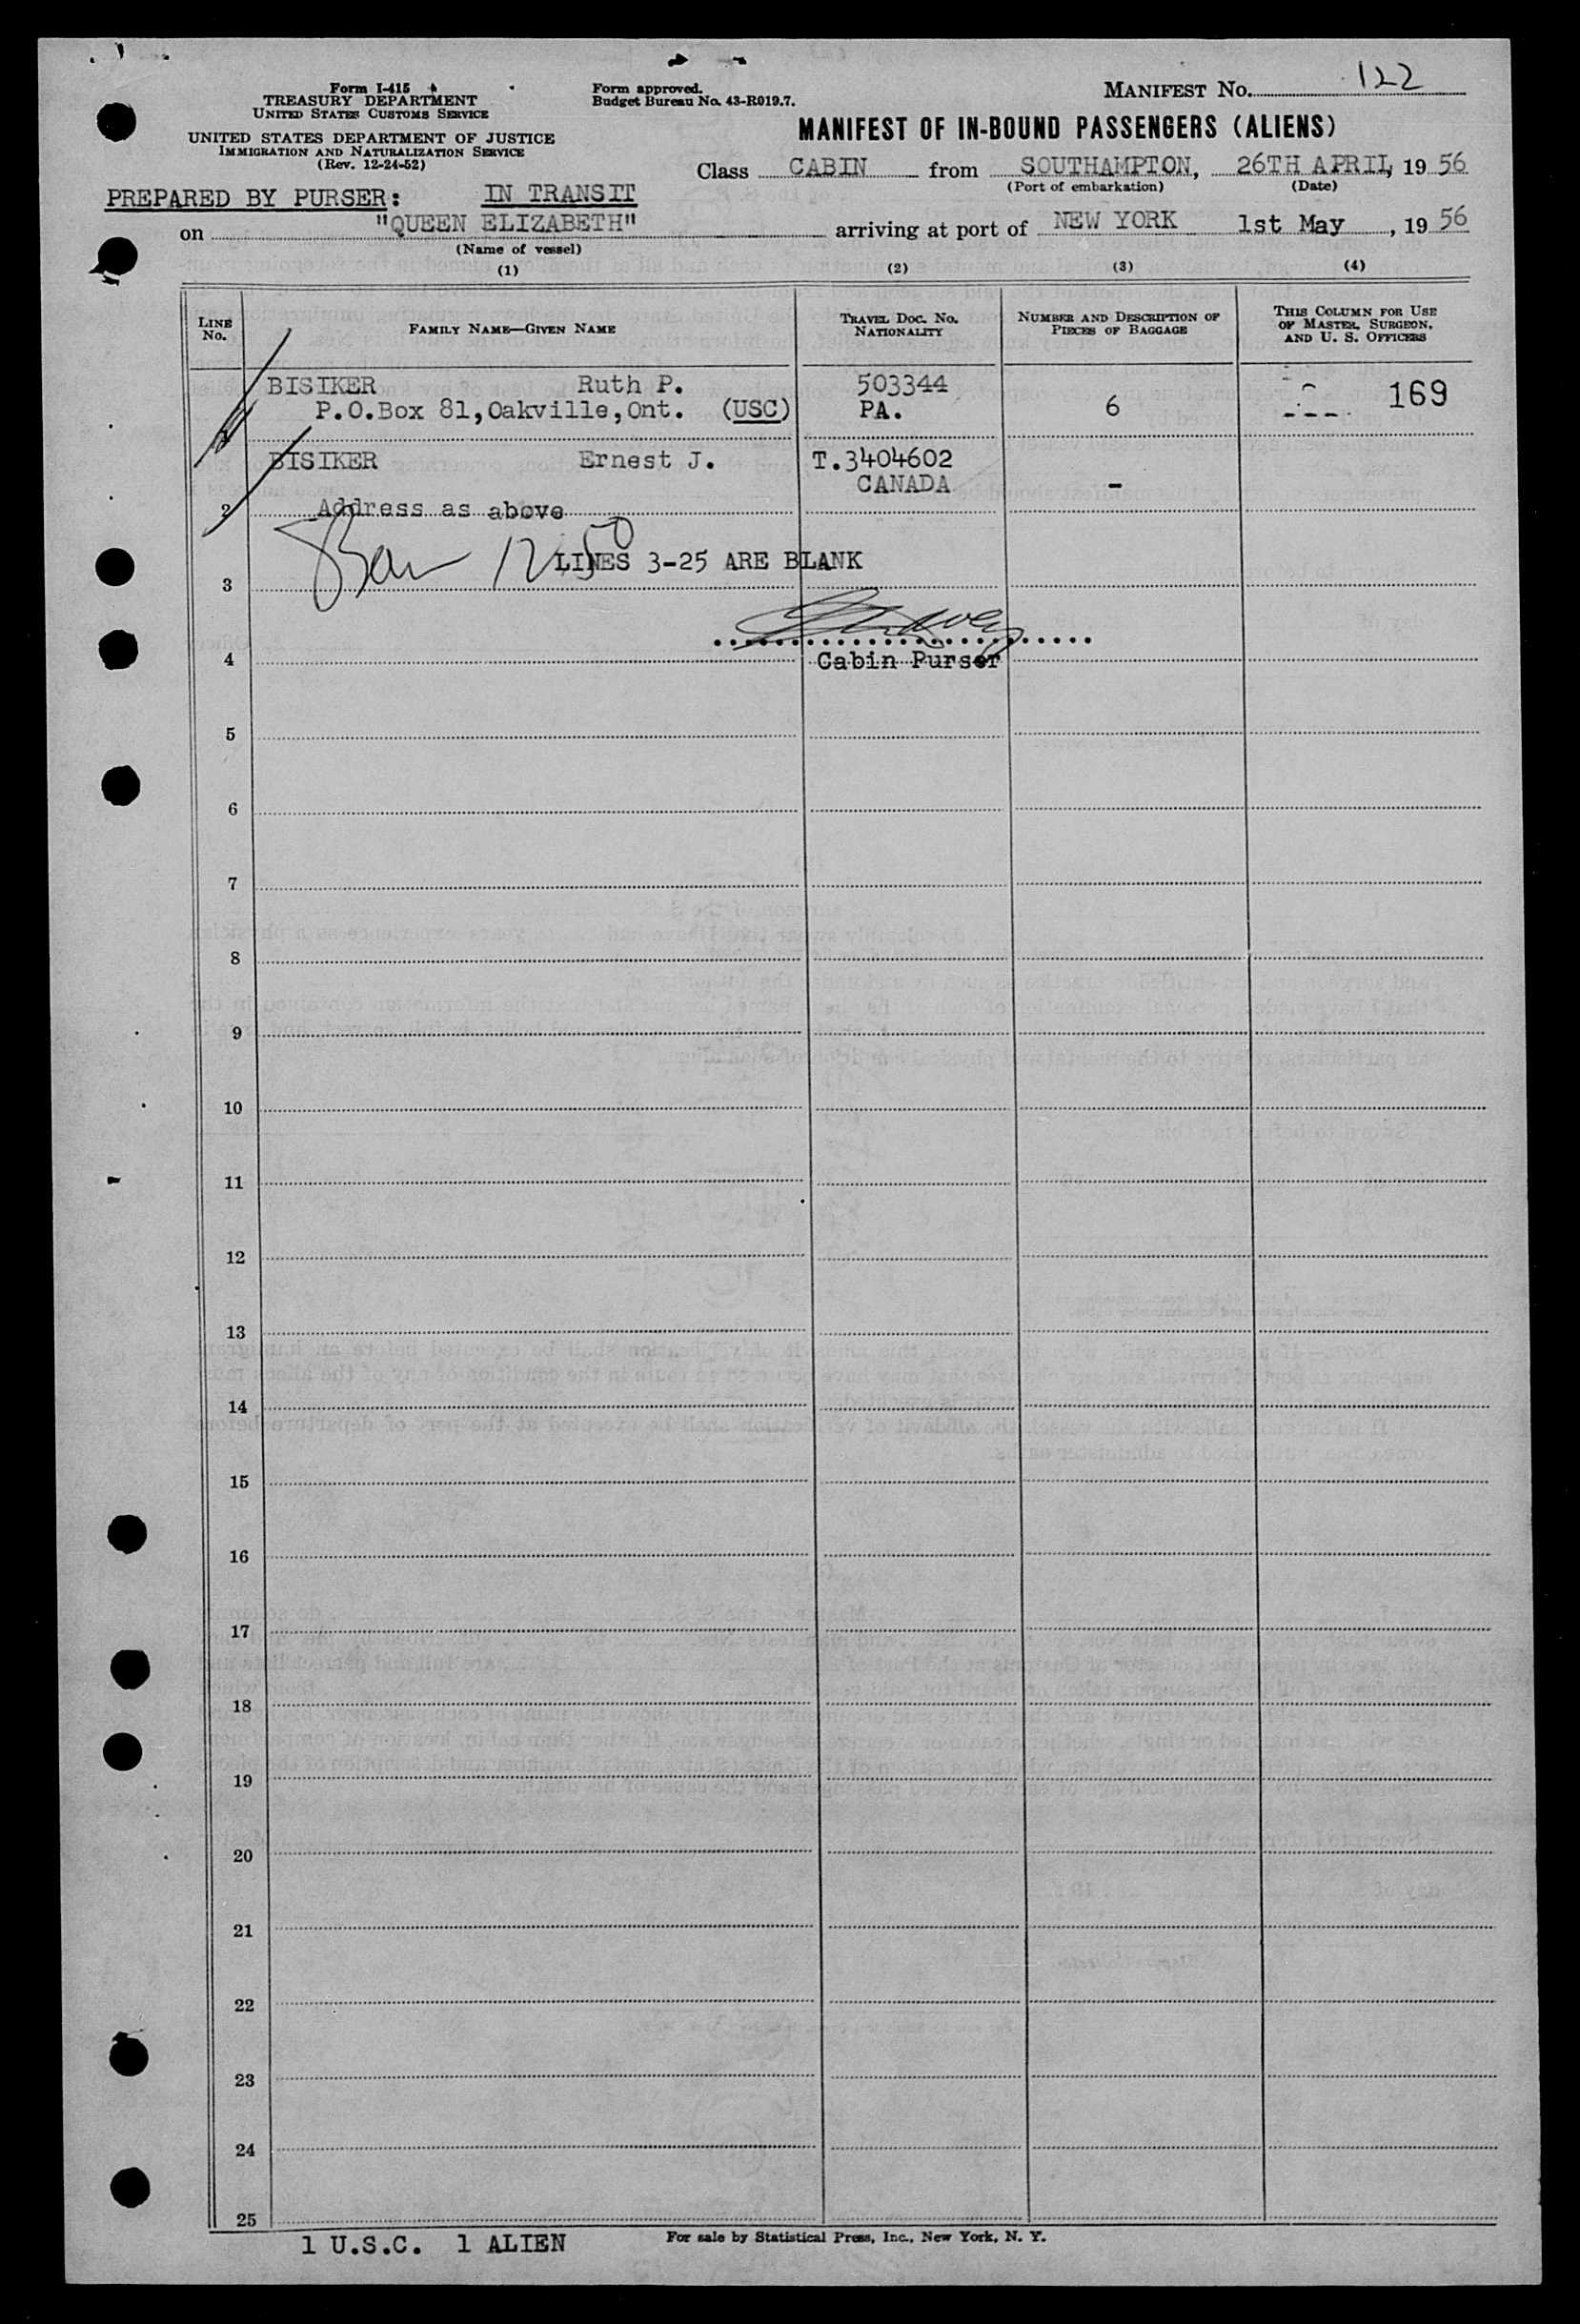 Form I-415
TREASURY DEPARTMENT
UNITED STATES CUSTOMS SERVICE
UNITED STATES DEPARTMENT OF JUSTICE
IMMIGRATION AND NATURALIZATION SERVICE
(Rev. 12-24-52)
Form approved.
Budget Bureau No. 43-R019.7.
MANIFEST No. 122
MANIFEST OF IN-BOUND PASSENGERS (ALIENS)
Class CABIN from SOUTHAMPTON, 26TH APRIL, 19 56
(Port of embarkation) (Date)
PREPARED BY PURSER: IN TRANSIT
on "QUEEN ELIZABETH" arriving at port of NEW YORK 1st May, 19 56
(Name of vessel)
(1) (2) (3) (4)
LINE No. FAMILY NAME—GIVEN NAME TRAVEL DOC. No. NATIONALITY NUMBER AND DESCRIPTION OF PIECES OF BAGGAGE THIS COLUMN FOR USE OF MASTER, SURGEON, AND U. S. OFFICERS
BISIKER Ruth P. 503344 169
1 P.O.Box 81,Oakville,Ont. (USC) PA. 6
BISIKER Ernest J. T.3404602
CANADA -
2 Address as above
LINES 3-25 ARE BLANK
3
4 Cabin Purser
5
6
7
8
9
10
11
12
13
14
15
16
17
18
19
20
21
22
23
24
25
1 U.S.C. 1 ALIEN
For sale by Statistical Press, Inc., New York, N. Y.